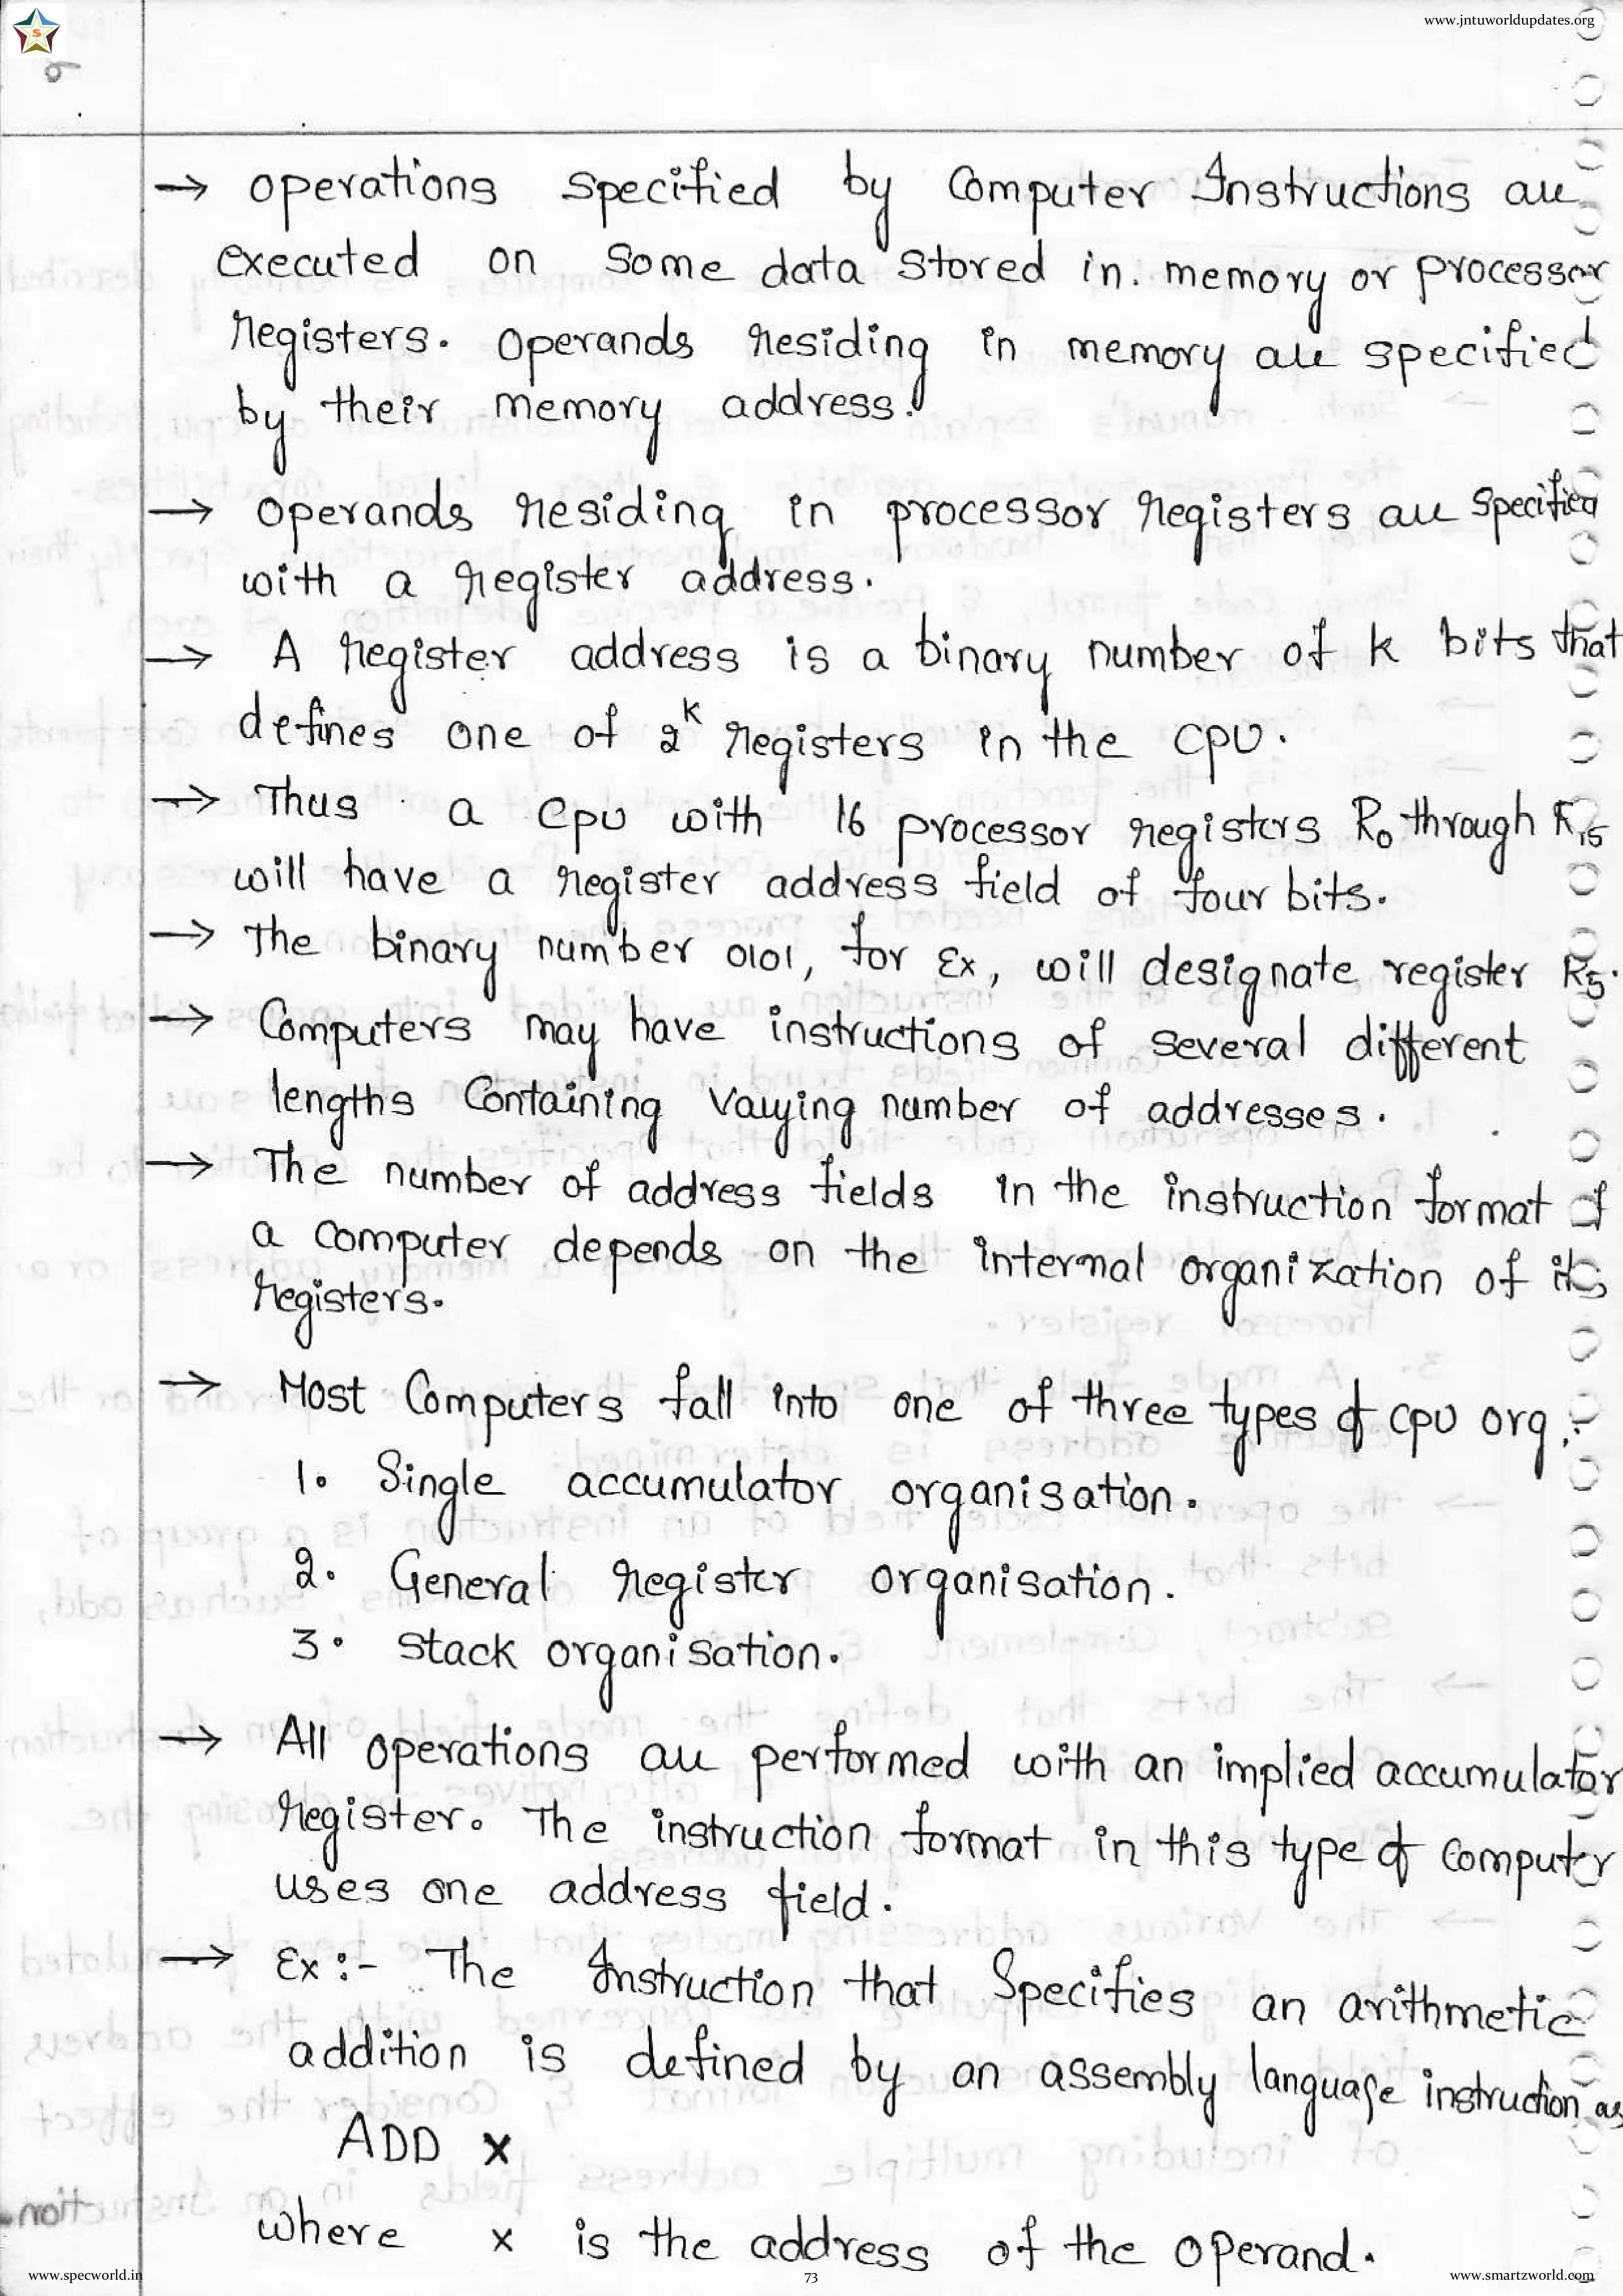 www.jntuworldupdates.org
→ operations specified by Computer Instructions are
executed on some data stored in. memory or processor
registers. Operands residing in memory are specified
by their memory address.
→ operands residing in processor registers are specified
with a register address.
→ A register address is a binary number of k bits that
defines one of 2^k registers in the CPU.
→ Thus a CPU with 16 processor registers R0 through R15
will have a register address field of four bits.
→ The binary number 0101, for Ex, will designate register R5.
→ Computers may have instructions of several different
lengths Containing Varying number of addresses.
→ The number of address fields in the instruction format of
a computer depends on the internal organization of its
registers.
→ Most Computers fall into one of three types of CPU org,:-
1. Single accumulator organisation.
2. General register organisation.
3. Stack organisation.
→ All operations are performed with an implied accumulator
register. The instruction format in this type of Computer
uses one address field.
→ Ex:- The Instruction that Specifies an arithmetic
addition is defined by an assembly language instruction as
ADD X
where X is the address of the operand.
www.specworld.in
73
www.smartzworld.com